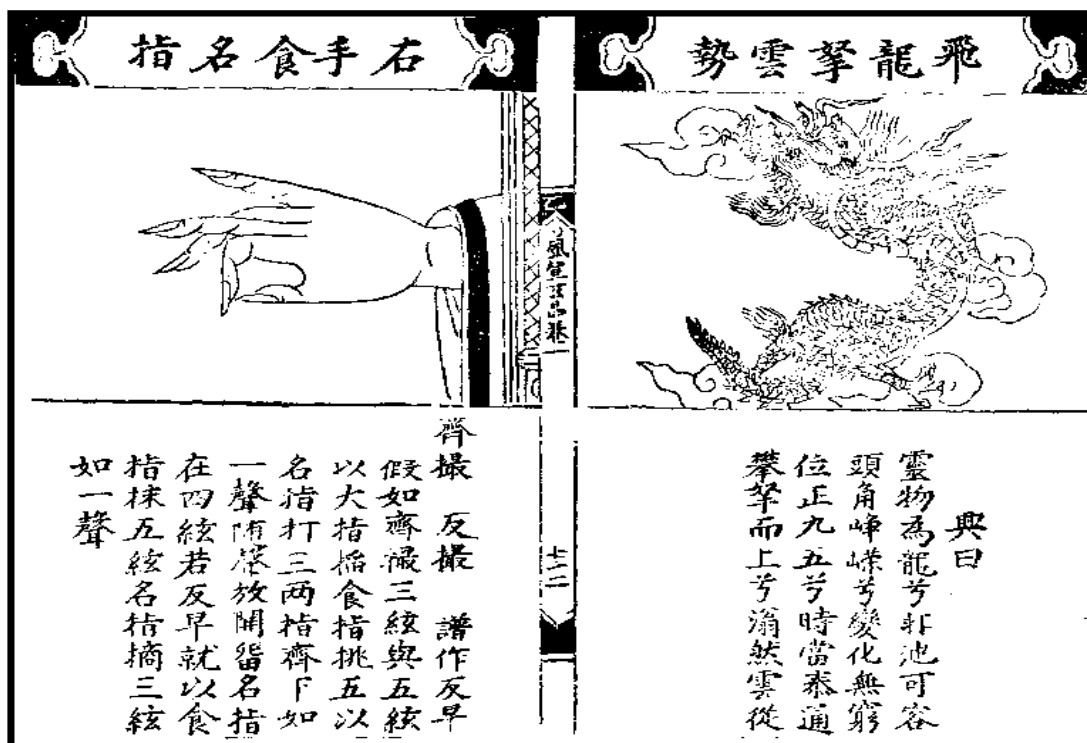 飛龍拏雲勢
興曰
靈物為龍兮非池可容
頭角崢嶸兮變化無窮
位正九五兮時當泰通
攀拏而上兮滃然雲從
風宣玄品卷一
右手食名指
齊撮 反撮 譜作反早
假如齊撮三絃與五絃
以大指搯食指挑五以
名指打三两指齊下如
一聲放開留名指
在四絃若反早就以食
指抹五絃名指摘三絃
如一聲